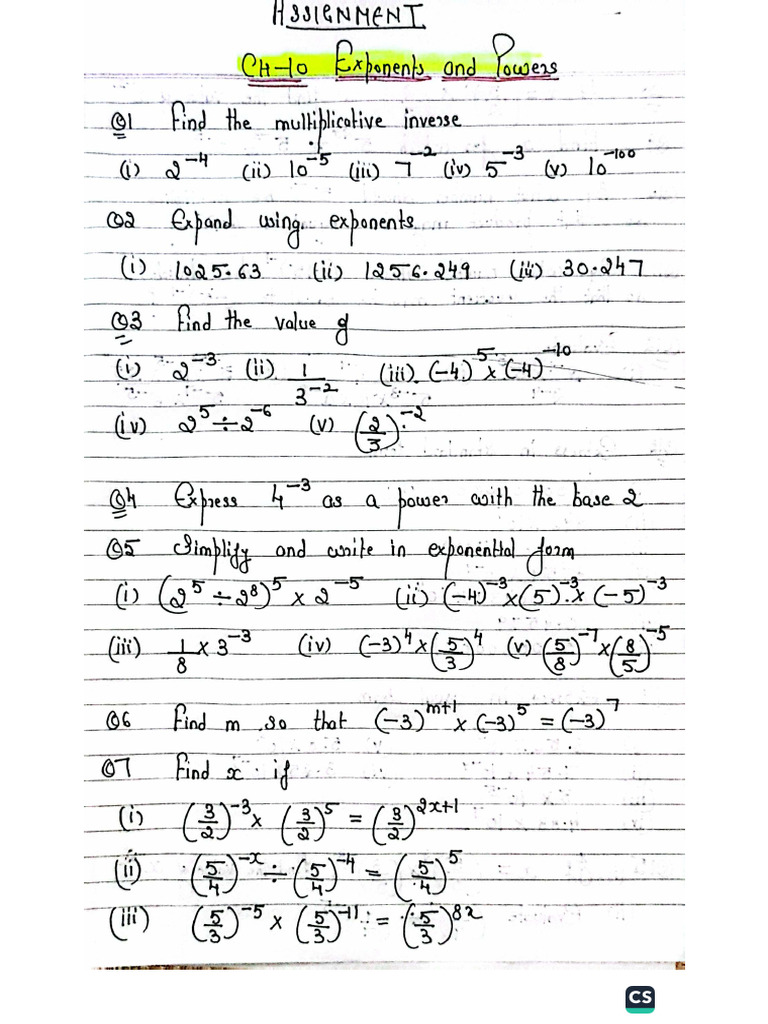 ASSIGNMENT
CH-10 Exponents and Powers
Q1 Find the multiplicative inverse
(i) 2⁻⁴ (ii) 10⁻⁵ (iii) 7⁻² (iv) 5⁻³ (v) 10⁻¹⁰⁰
Q2 Expand using exponents
(i) 1025.63 (ii) 1256.249 (iii) 30.247
Q3 Find the value of
(i) 2⁻³ (ii) 1/3⁻² (iii) (-4)⁵ × (-4)⁻¹⁰
(iv) 2⁵ ÷ 2⁻⁶ (v) (2/3)⁻²
Q4 Express 4⁻³ as a power with the base 2
Q5 Simplify and write in exponential form
(i) (2⁵ ÷ 2⁸)⁵ × 2⁻⁵ (ii) (-4)⁻³ × (5)⁻³ × (-5)⁻³
(iii) 1/8 × 3⁻³ (iv) (-3)⁴ × (5/3)⁴ (v) (5/8)⁻⁷ × (8/5)⁻⁵
Q6 Find m so that (-3)ᵐ⁺¹ × (-3)⁵ = (-3)⁷
Q7 Find x if
(i) (3/2)⁻³ × (3/2)⁵ = (3/2)²ˣ⁺¹
(ii) (5/4)⁻ˣ ÷ (5/4)⁻⁴ = (5/4)⁵
(iii) (5/3)⁻⁵ × (5/3)⁻¹¹ = (5/3)⁸ˣ
CS